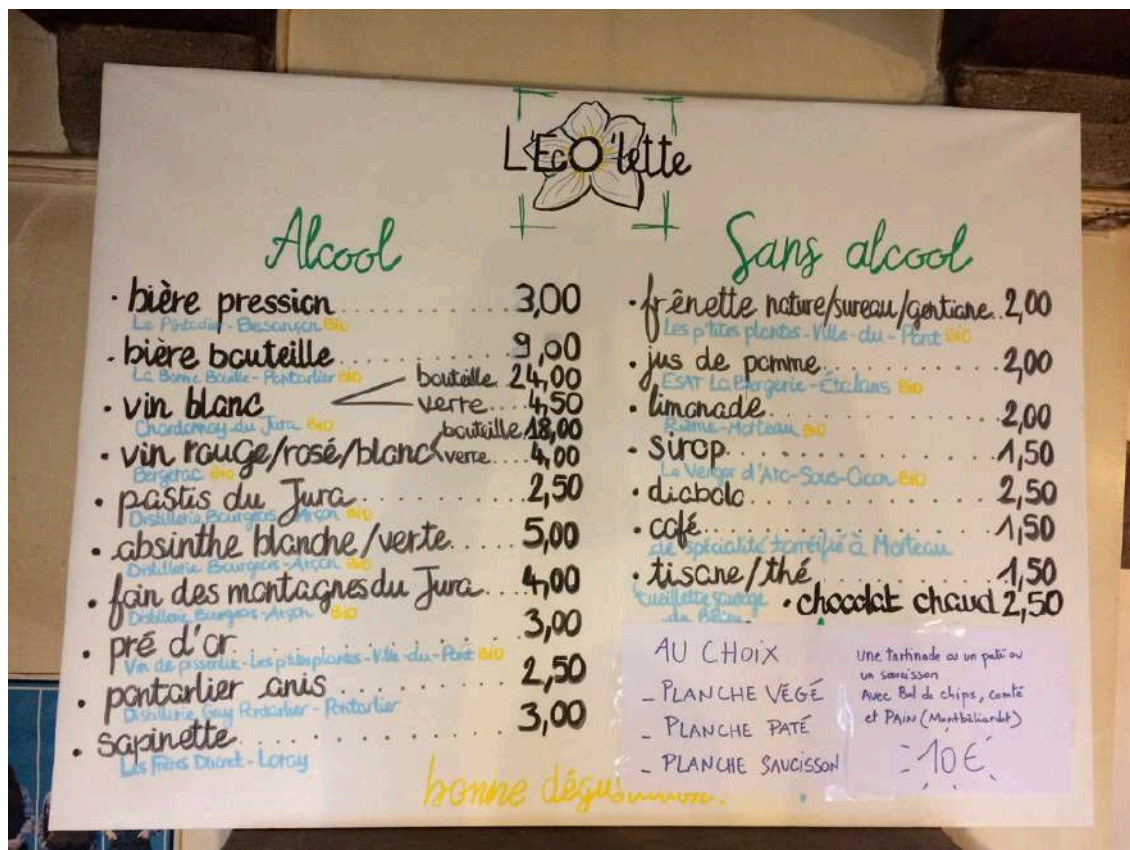 L'EcO'lette
Alcool
· bière pression.............. 3,00
Le Pintadier - Besançon Bio
· bière bouteille................ 9,00
La Barne Bouille - Pontarlier Bio
· vin blanc
bouteille 24,00
verre.... 4,50
Chardonnay du Jura Bio
· vin rouge/rosé/blanc
bouteille 18,00
verre.... 4,00
Bergerac Bio
· pastis du Jura............. 2,50
Distillerie Bourgeois - Arçon Bio
· absinthe blanche/verte...... 5,00
Distillerie Bourgeois - Arçon Bio
· foin des montagnes du Jura.... 4,00
Distillerie Bourgeois - Arçon Bio
· pré d'or.................... 3,00
Vin de pissenlit - Les p'tites plantes - Ville-du-Pont Bio
· pontarlier anis............ 2,50
Distillerie Guy Pontarlier - Pontarlier
· sapinette.................. 3,00
Les Frères Ducret - Loray
Sans alcool
· frênette nature/sureau/gentiane.. 2,00
Les p'tites plantes - Ville-du-Pont Bio
· jus de pomme............. 2,00
ESAT La Bergerie - Étalans Bio
· limonade................. 2,00
Rième - Morteau Bio
· sirop..................... 1,50
Le Verger d'Arc-Sous-Cicon Bio
· diabolo................... 2,50
· café...................... 1,50
de spécialité torréfié à Morteau
· tisane/thé................ 1,50
Cueillette sauvage
du
· chocolat chaud 2,50
AU CHOIX
- PLANCHE VÉGÉ
- PLANCHE PATÉ
- PLANCHE SAUCISSON
Une tartinade ou un paté ou
un saucisson
Avec Bol de chips, comté
et PAIN (Montbéliardot)
10€
bonne dégu